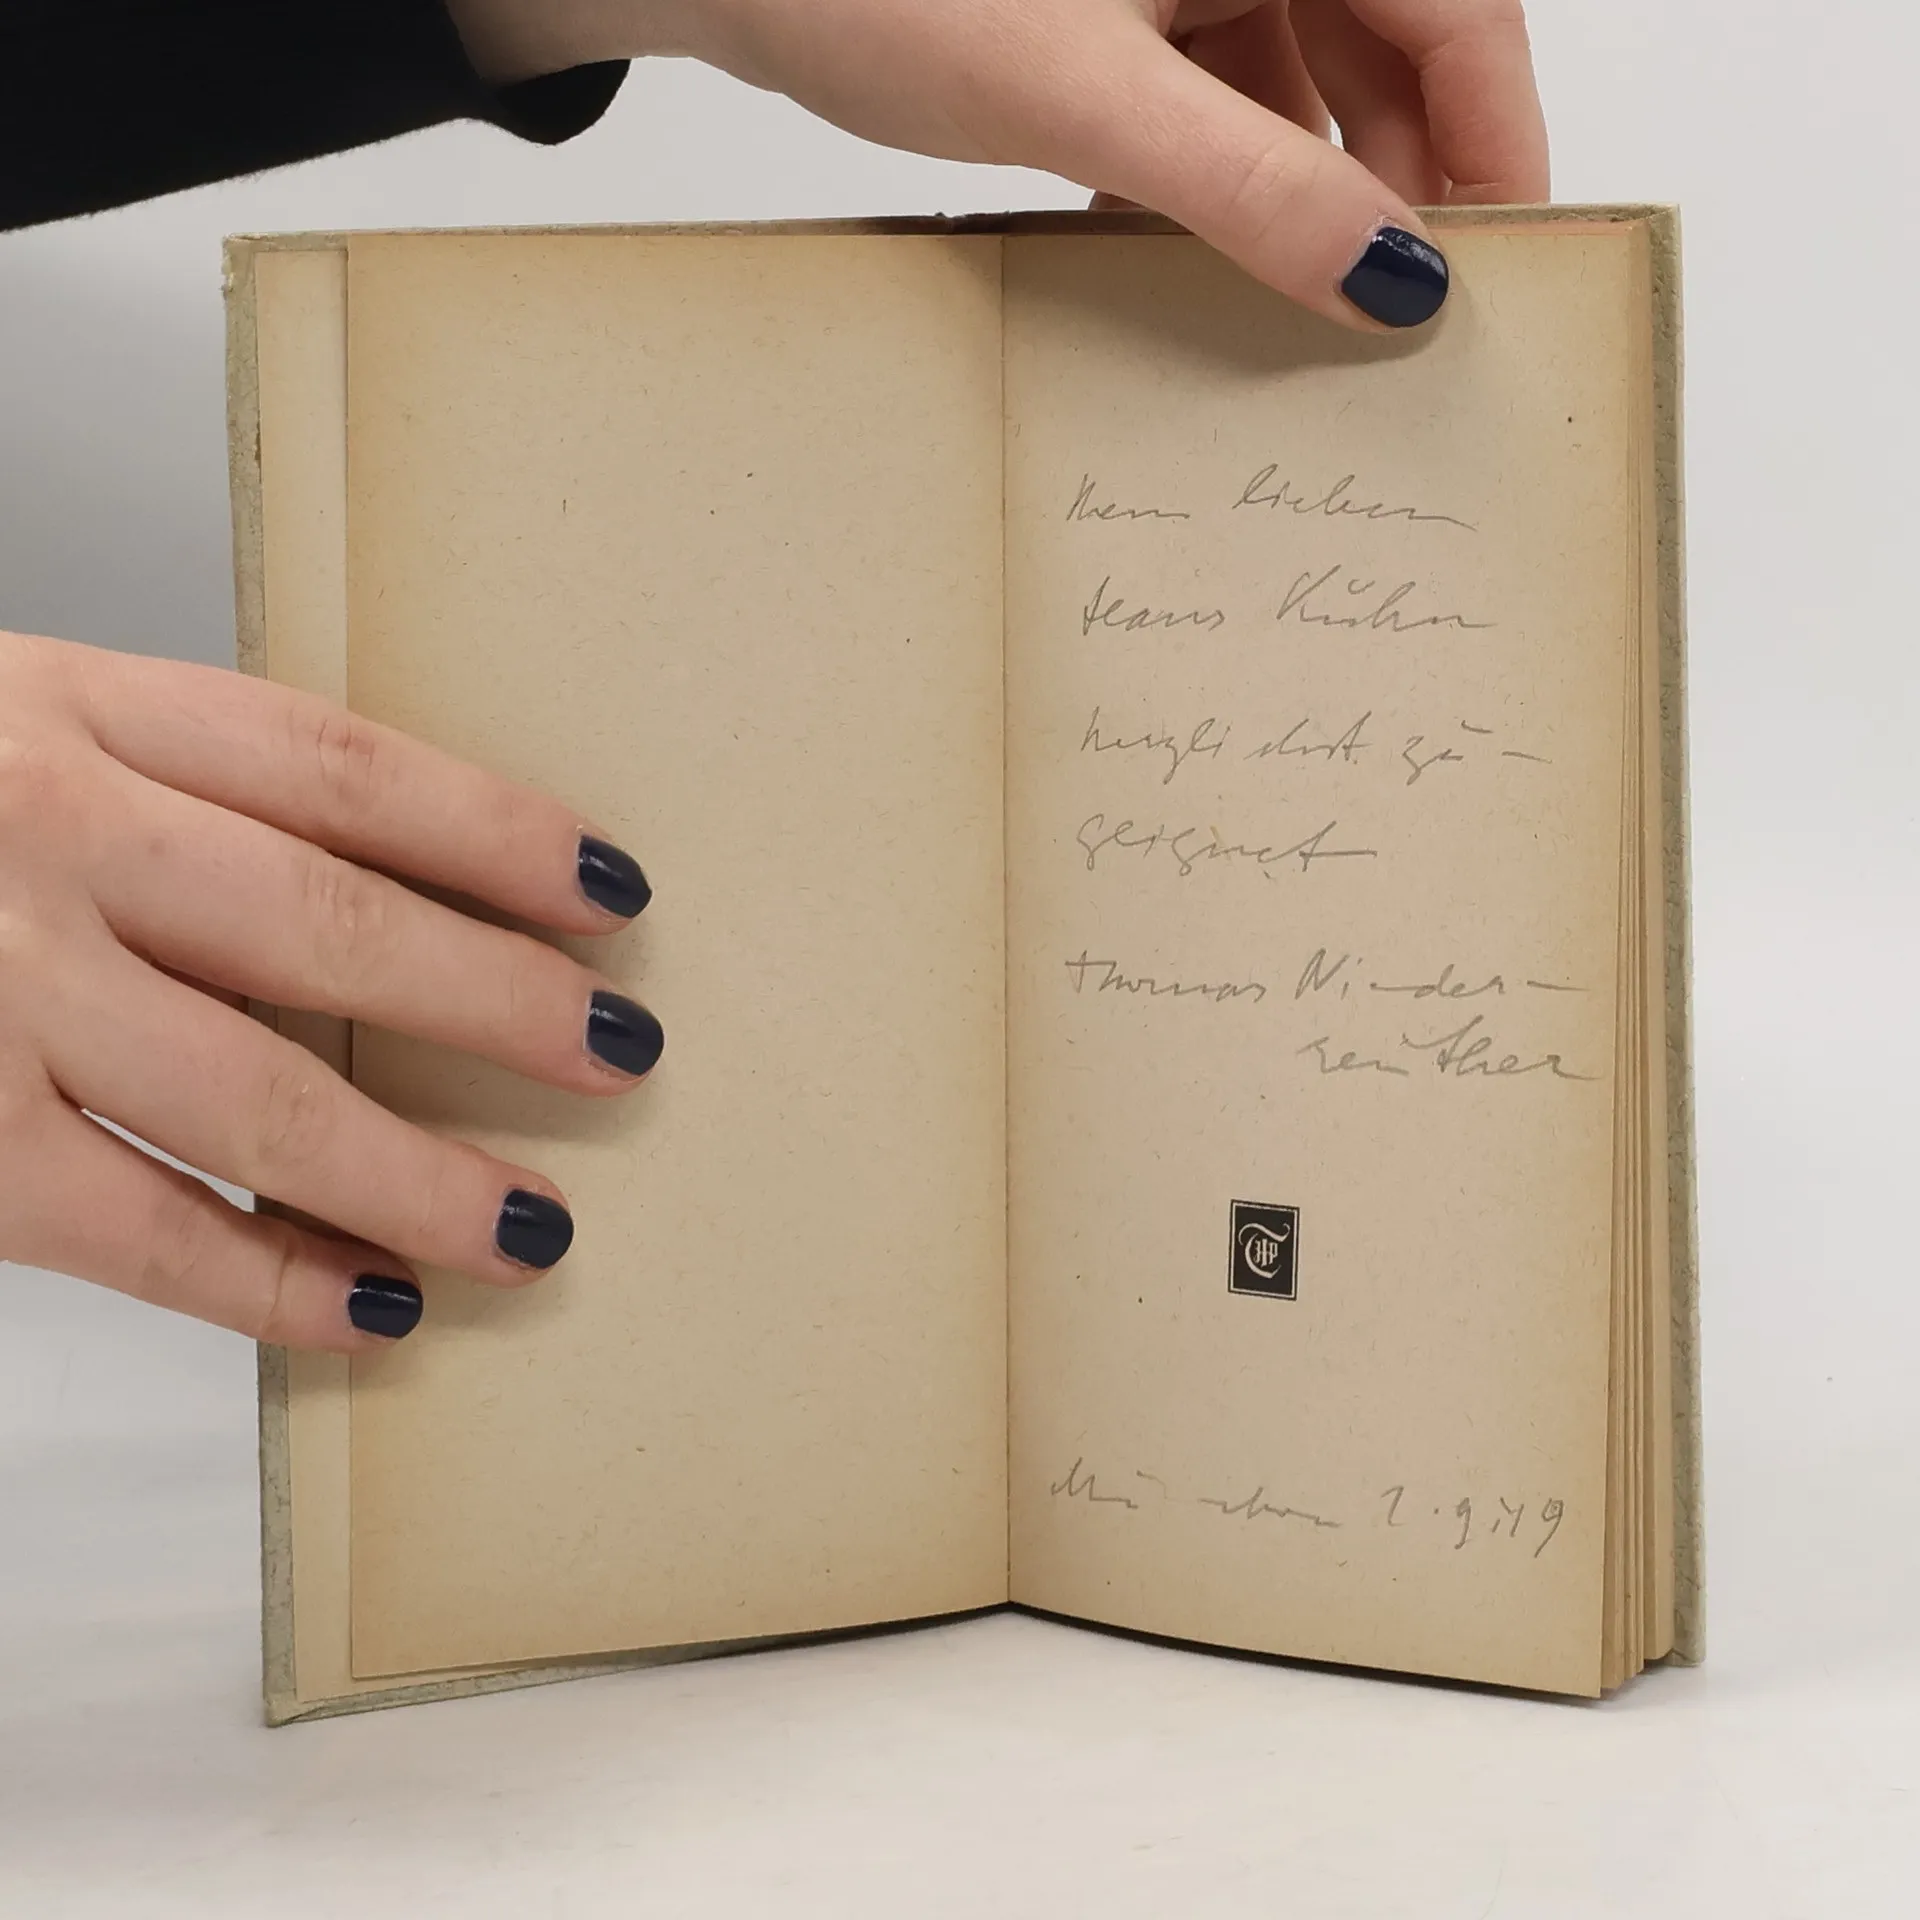 Dem lieben
Hans Kühn
herzlichst zu-
geeignet
Thomas Nieder-
reuther
THP
München 2.9.49